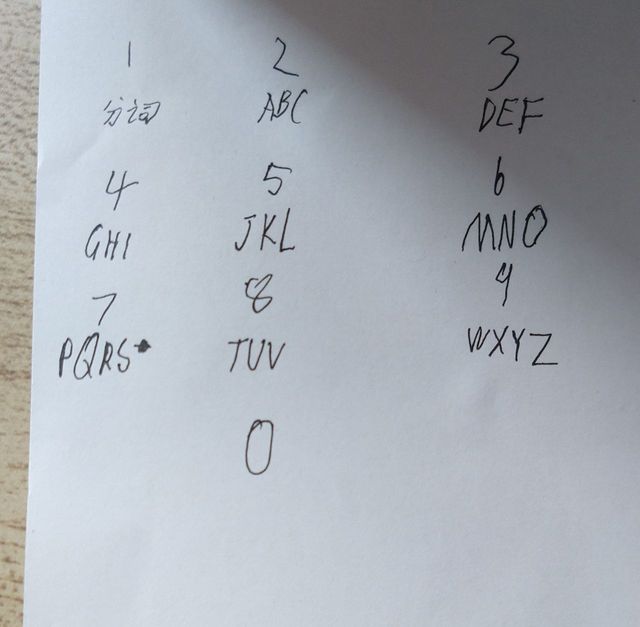 1 2 3
分词 ABC DEF
4 5 6
GHI JKL MNO
7 8 9
PQRS TUV WXYZ
0